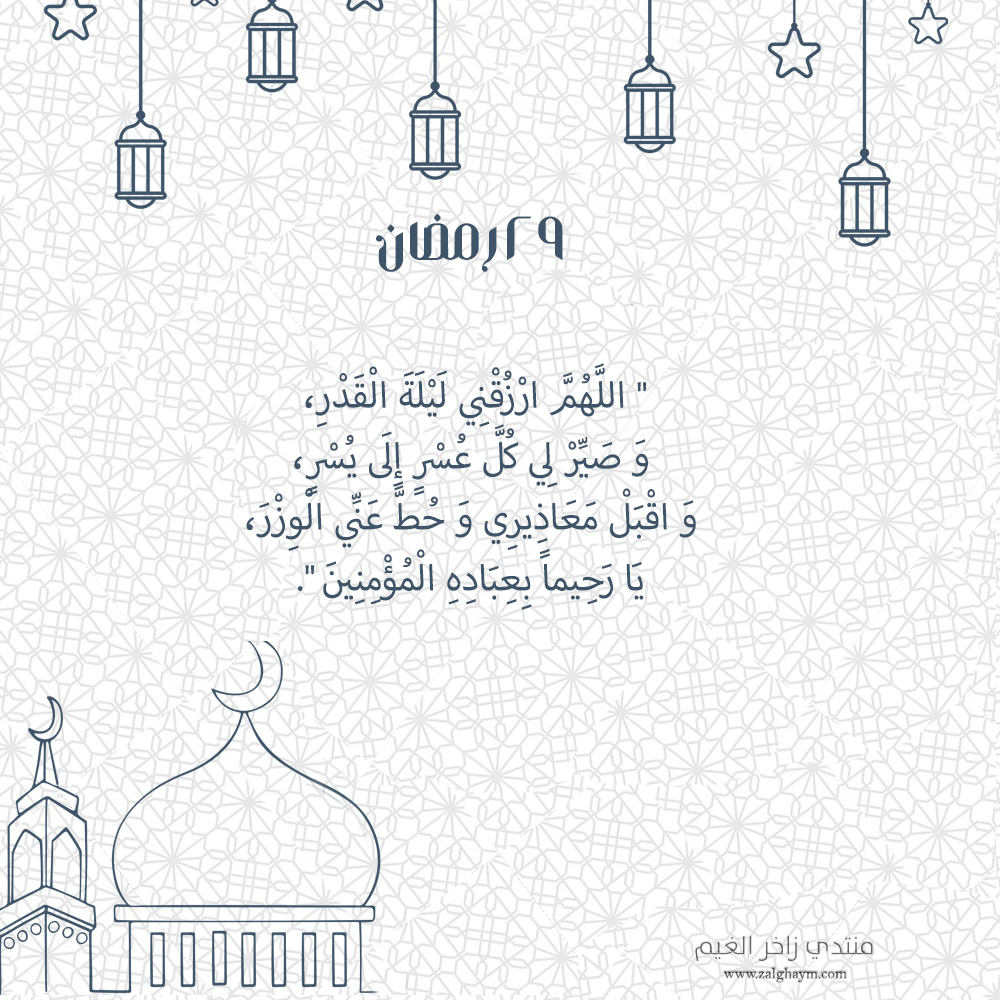 ٢٩ رمضان
" اللَّهُمَّ ارْزُقْنِي لَيْلَةَ الْقَدْرِ،
وَ صَيِّرْ لِي كُلَّ عُسْرٍ إِلَى يُسْرٍ،
وَ اقْبَلْ مَعَاذِيرِي وَ حُطَّ عَنِّي الْوِزْرَ،
يَا رَحِيماً بِعِبَادِهِ الْمُؤْمِنِينَ ".
منتدى زاخر الغيم
www.zalghaym.com